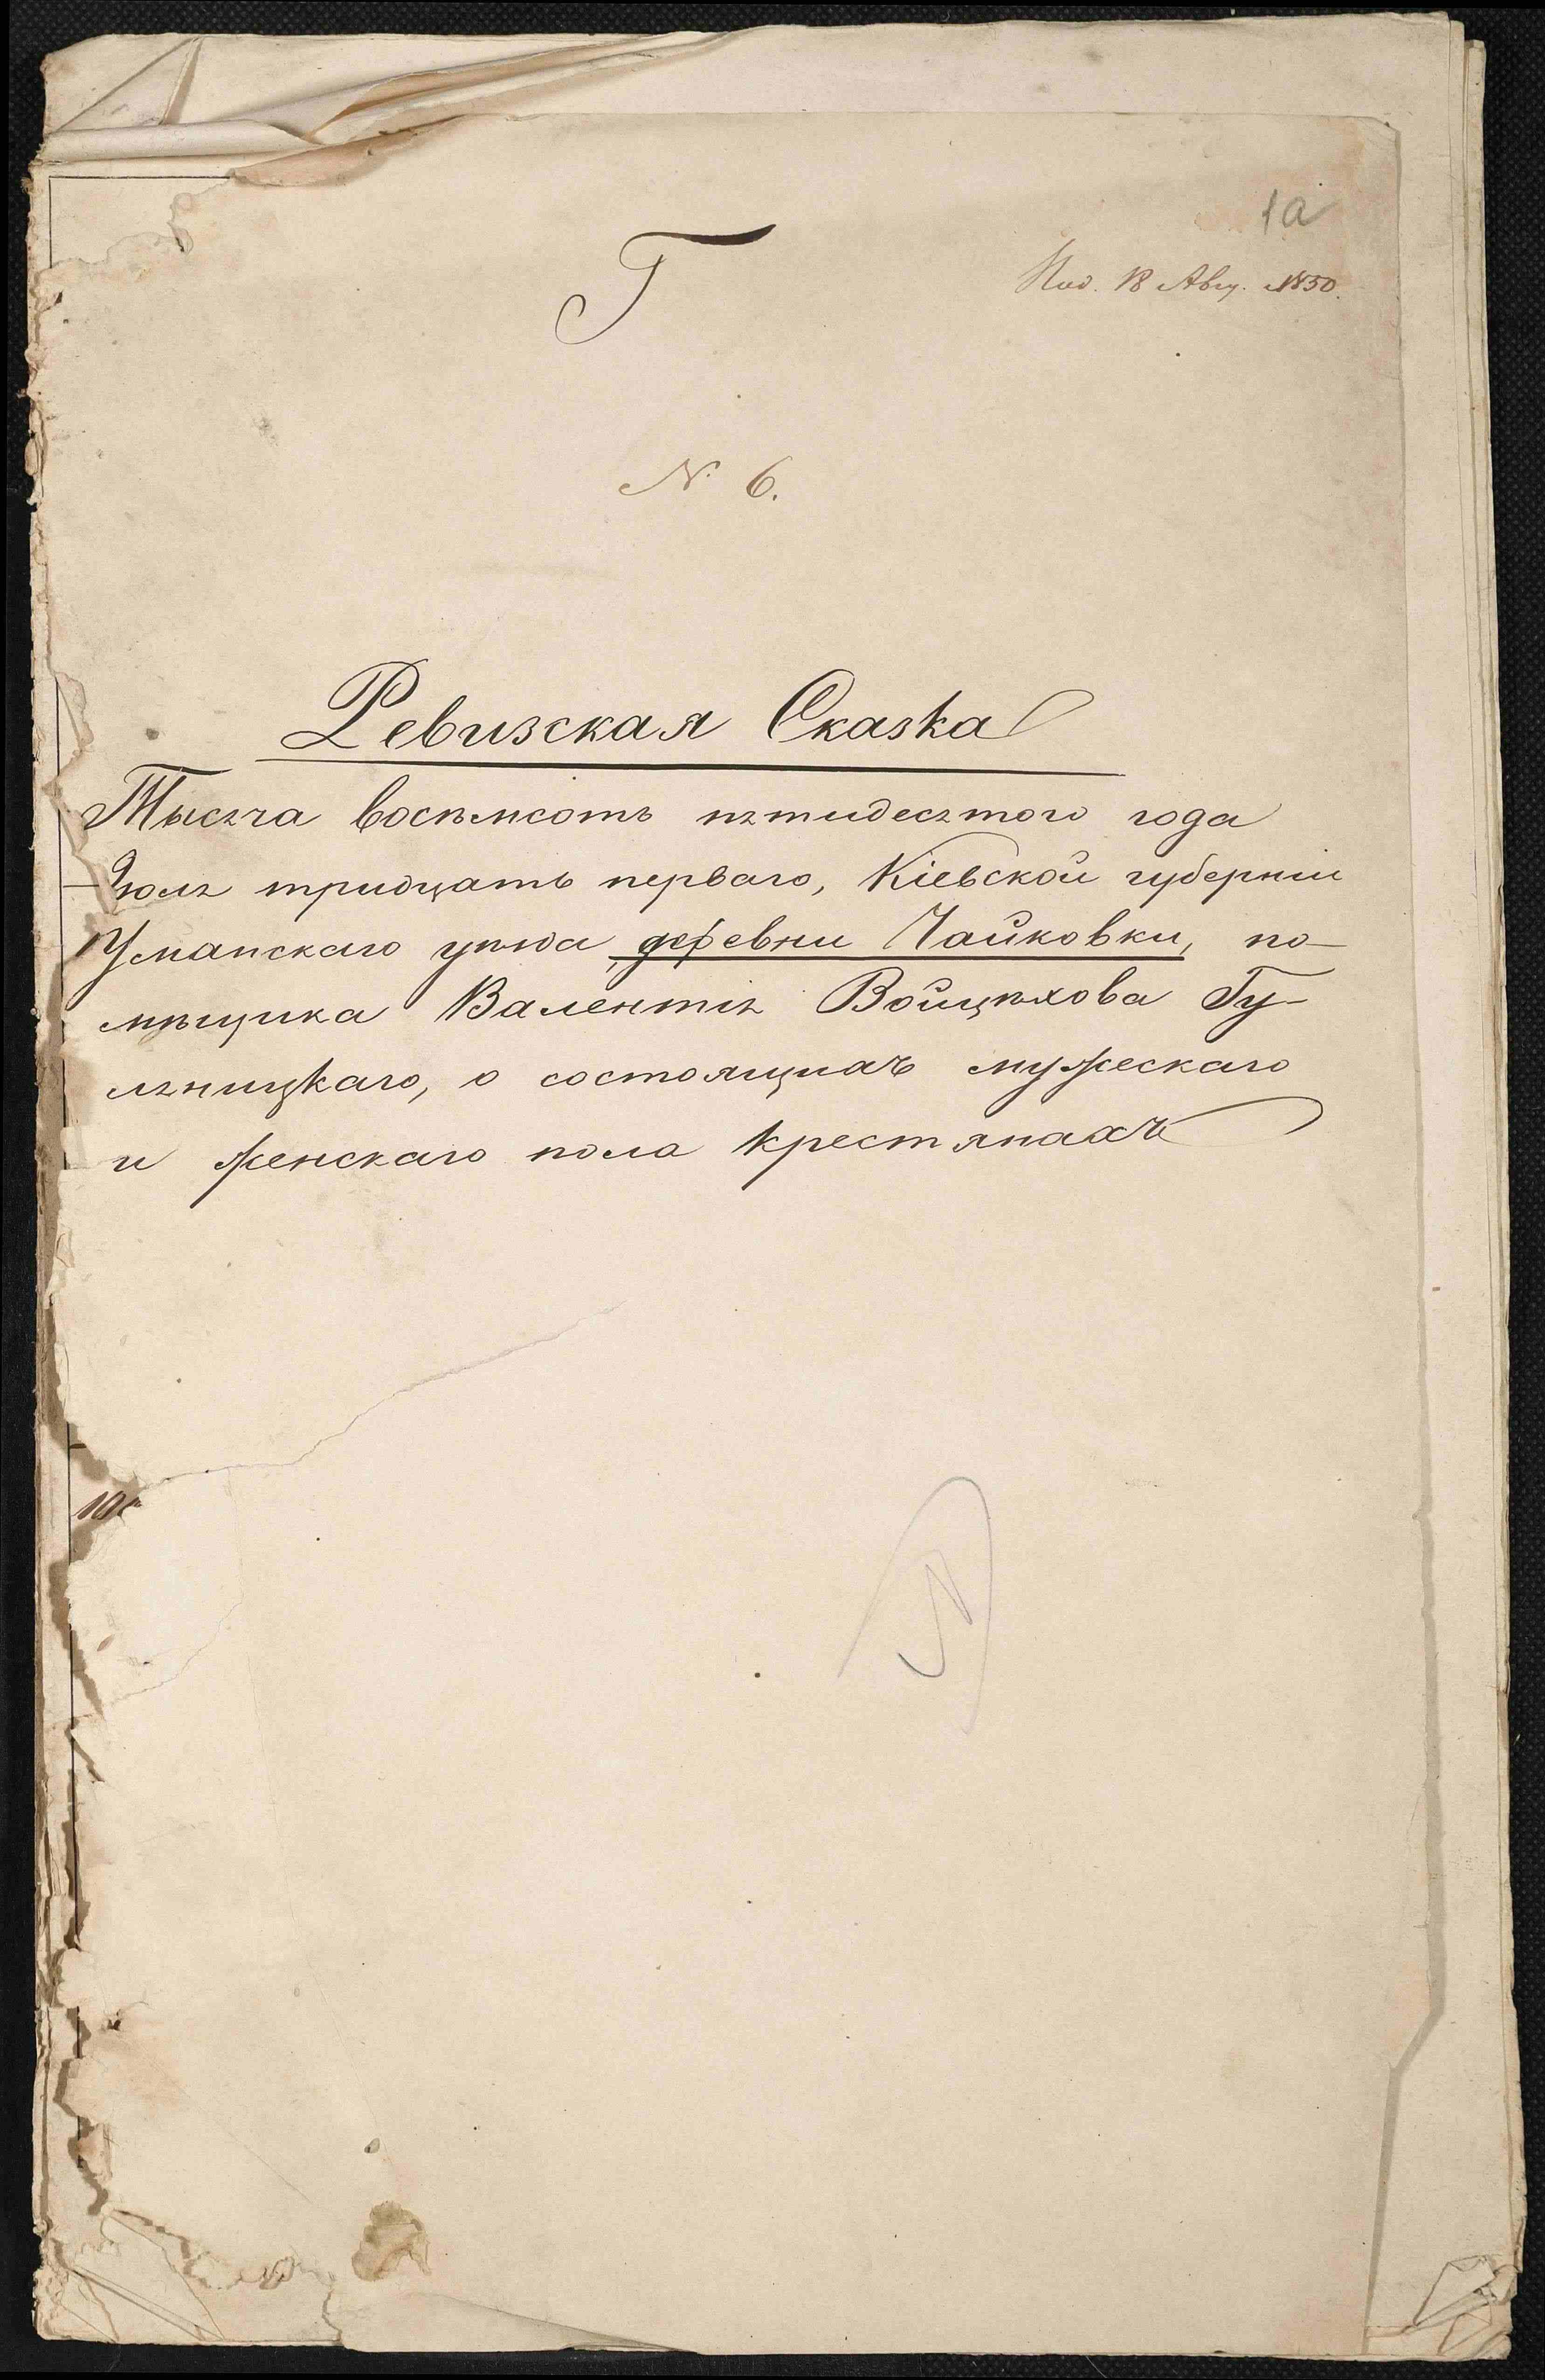 1а
Под. 18 Авг. 1850.
Г
N. 6.
Ревизская Сказка
Тысяча восемьсотъ пятидесятого года
Іюля тридцать перваго, Кіевской губерніи
Уманскаго уѣзда, деревни Чайковки, по-
мѣщика Валентія Войцѣхова Гу-
ляницкаго, о состоящихъ мужескаго
и женскаго пола крестянахъ